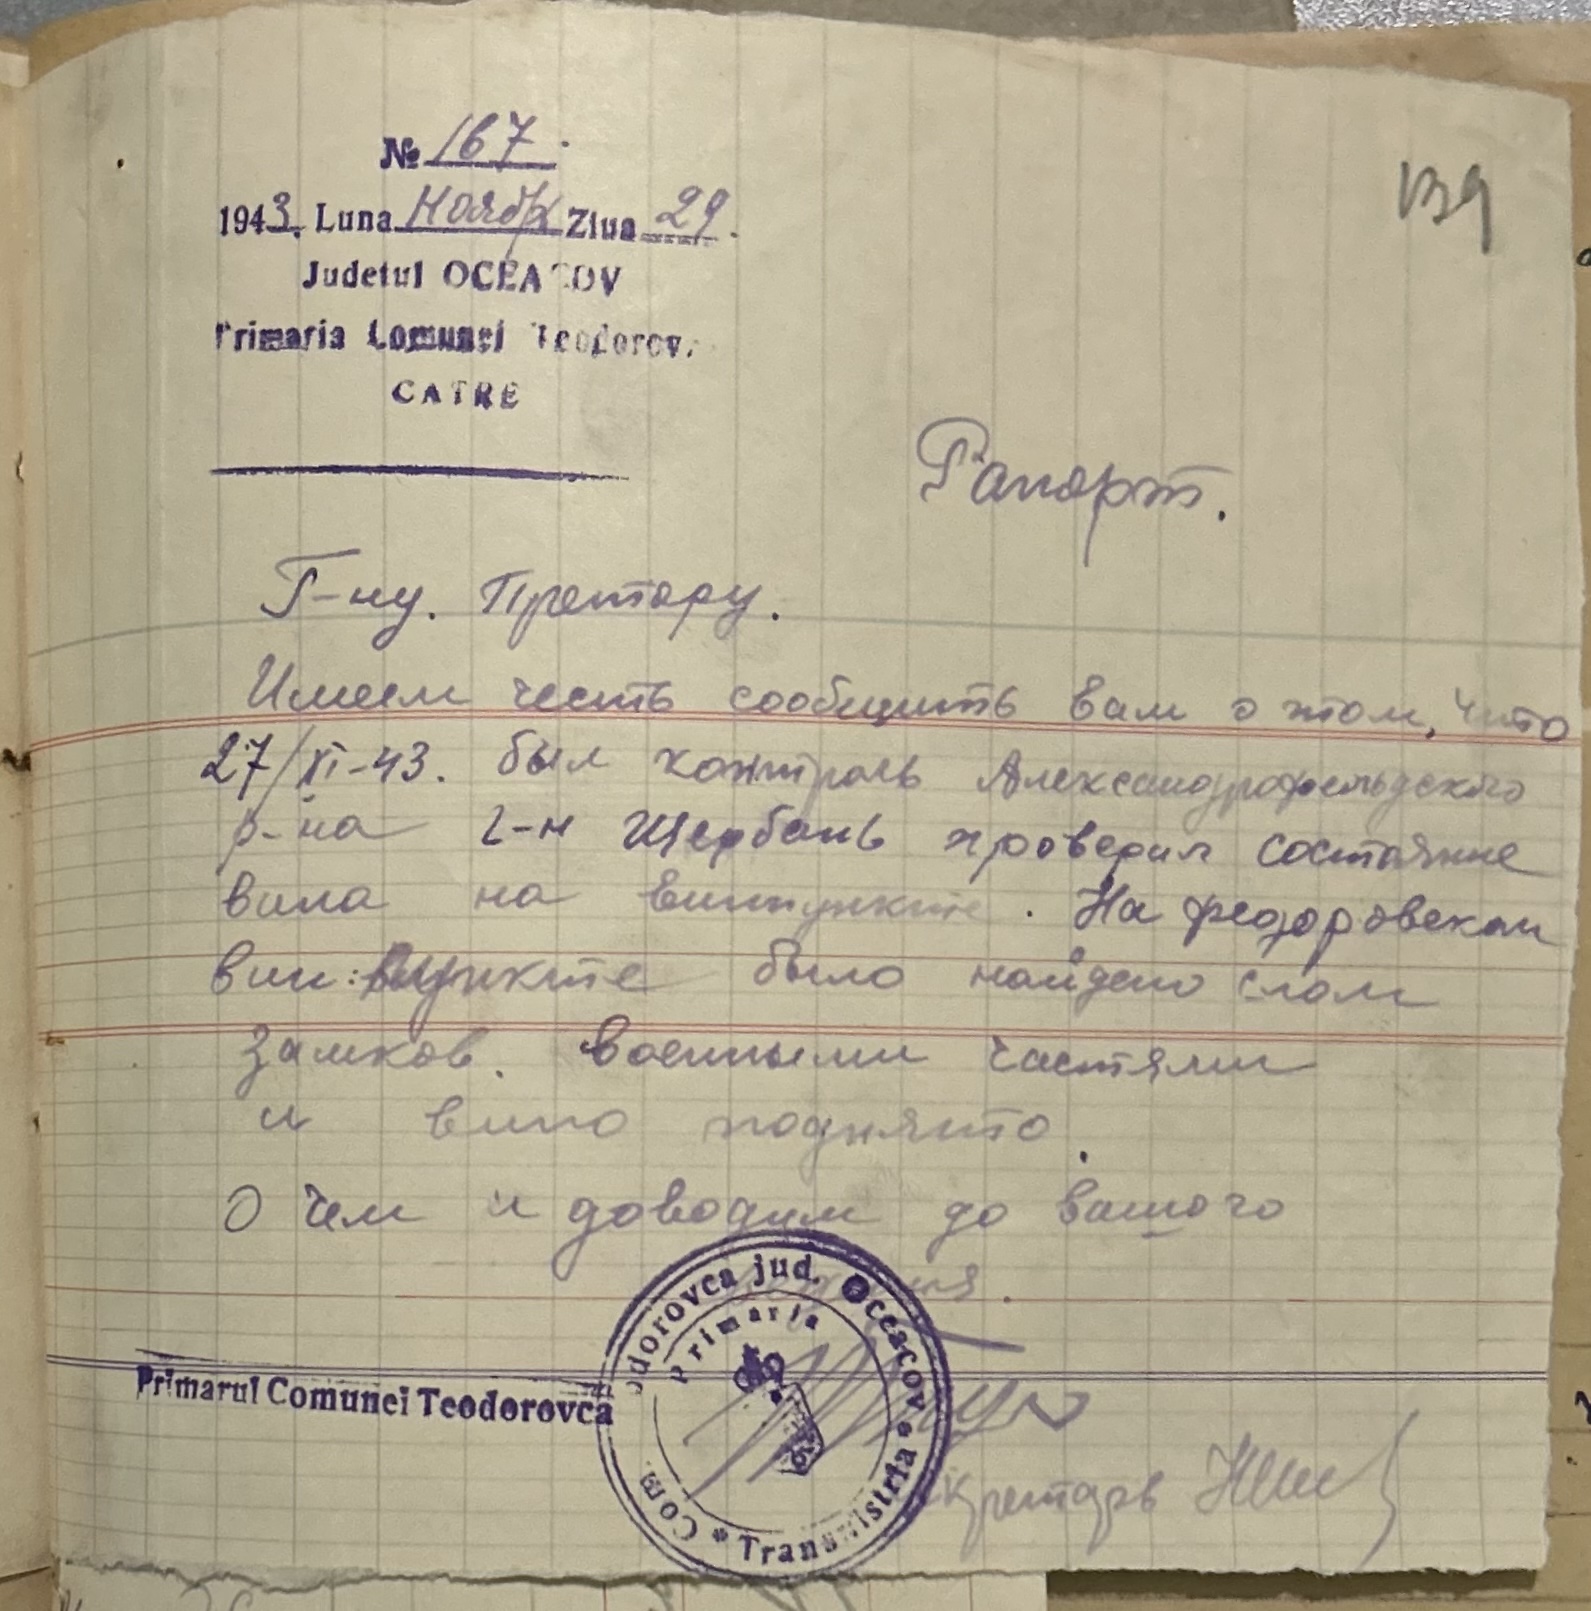 № 167.
1943. Luna Ноябр Ziua 29.
Judetul OCEACOV
Primaria Comunei Teodorov.
CATRE
139
Рапорт.
Г-ну. Претору.
Имеем честь сообщить вам о этом, что
27/XI-43. был контроль Александрфельдского
р-на г-н Щербань проверил состаяние
вина на винпункте. На федоровском
вин: пункте было найдено слом
замков. военными частями
и вино поднято.
О чем и доводим до вашого
Primarul Comunei Teodorovca
Com. Teodorovca jud. Oceacov * Transnistria *
Primaria
секретарь